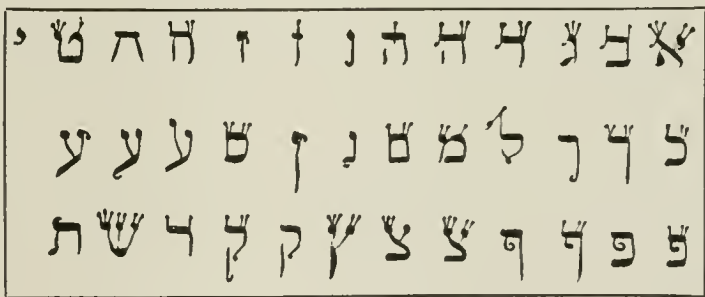 א ב ג ד ה ה ו ו ז ח ח ט י
כ ך ך ל מ ם נ ן ס ע ע ע
פ פ ף ף צ צ ץ ק ק ר ש ת